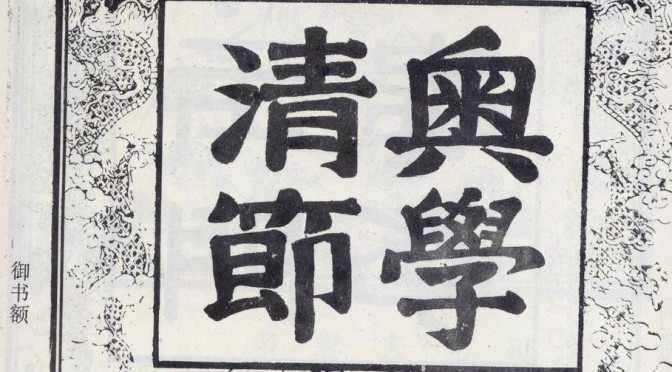 奥學
清節
御书额